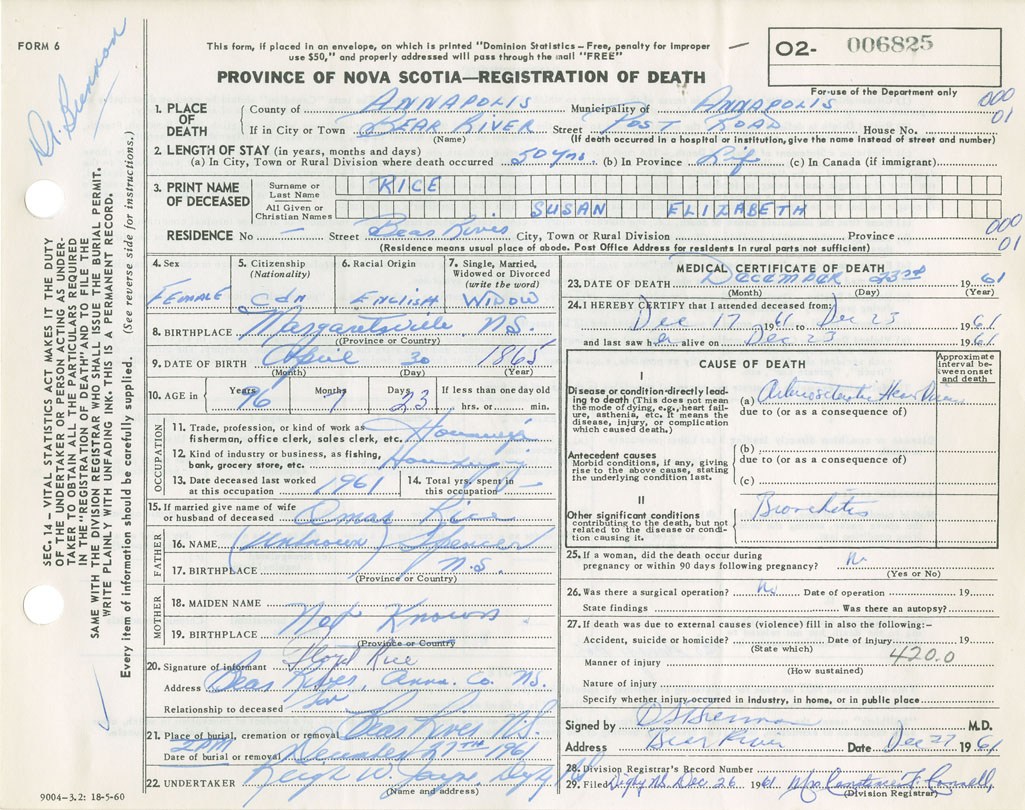 FORM 6
Dr. Brennan
This form, if placed in an envelope, on which is printed "Dominion Statistics – Free, penalty for improper
use $50," and properly addressed will pass through the mail "FREE"
PROVINCE OF NOVA SCOTIA—REGISTRATION OF DEATH
02- 006825
For use of the Department only
1. PLACE OF DEATH
County of ANNAPOLIS Municipality of ANNAPOLIS 000 01
If in City or Town BEAR RIVER Street POST ROAD House No.
(Name) (If death occurred in a hospital or institution, give the name instead of street and number)
2. LENGTH OF STAY (in years, months and days)
(a) In City, Town or Rural Division where death occurred 50 yrs. (b) In Province Life (c) In Canada (if immigrant)
3. PRINT NAME OF DECEASED
Surname or Last Name RICE
All Given or Christian Names SUSAN ELIZABETH
RESIDENCE No — Street Bear River City, Town or Rural Division Province 000 01
(Residence means usual place of abode. Post Office Address for residents in rural parts not sufficient)
4. Sex FEMALE
5. Citizenship (Nationality) Cdn
6. Racial Origin ENGLISH
7. Single, Married, Widowed or Divorced (write the word) WIDOW
8. BIRTHPLACE Margaretsville, N.S.
(Province or Country)
9. DATE OF BIRTH April 30 1865
(Month) (Day) (Year)
10. AGE in Years 96 Months 7 Days 23 If less than one day old
hrs. or min.
OCCUPATION
11. Trade, profession, or kind of work as
fisherman, office clerk, sales clerk, etc.
12. Kind of industry or business, as fishing,
bank, grocery store, etc.
13. Date deceased last worked
at this occupation 1961
14. Total yrs. spent in
this occupation
15. If married give name of wife
or husband of deceased Omar Rice
FATHER
16. NAME (Unknown) Spencer
17. BIRTHPLACE N.S.
(Province or Country)
MOTHER
18. MAIDEN NAME
Not Known
19. BIRTHPLACE
(Province or Country)
20. Signature of informant Floyd Rice
Address Bear River, Anna. Co. N.S.
Relationship to deceased Son
21. Place of burial, cremation or removal Bear River N.S.
2 PM
Date of burial or removal December 27TH 1961
22. UNDERTAKER W. Jayne Digby NS
(Name and address)
9004-3.2: 18-5-60
MEDICAL CERTIFICATE OF DEATH
23. DATE OF DEATH DECEMBER 23rd 1961
(Month) (Day) (Year)
24. I HEREBY CERTIFY that I attended deceased from:
Dec 17 1961 to Dec 23 1961
and last saw her alive on Dec 23 1961
CAUSE OF DEATH
Approximate interval between onset and death
I
Disease or condition directly leading to death (This does not mean the mode of dying, e.g., heart failure, asthenia, etc. It means the disease, injury, or complication which caused death.)
(a) Arteriosclerotic Heart Disease
due to (or as a consequence of)
Antecedent causes
Morbid conditions, if any, giving rise to the above cause, stating the underlying condition last.
(b)
due to (or as a consequence of)
(c)
II
Other significant conditions
contributing to the death, but not related to the disease or condition causing it.
Bronchitis
25. If a woman, did the death occur during
pregnancy or within 90 days following pregnancy? No
(Yes or No)
26. Was there a surgical operation? No Date of operation 19
State findings Was there an autopsy?
27. If death was due to external causes (violence) fill in also the following:-
Accident, suicide or homicide? Date of injury 19
(State which)
420.0
Manner of injury
(How sustained)
Nature of injury
Specify whether injury occurred in industry, in home, or in public place
Signed by Brennan M.D.
Address Bear River Date Dec 27 1961
28. Division Registrar's Record Number
29. Filed Digby NS Dec 26 1961 Mrs Constance F. Connell
(Division Registrar)
SEC. 14 – VITAL STATISTICS ACT MAKES IT THE DUTY
OF THE UNDERTAKER OR PERSON ACTING AS UNDER-
TAKER TO OBTAIN ALL THE PARTICULARS REQUIRED
IN THE "REGISTRATION OF DEATH" AND TO FILE THE
SAME WITH THE DIVISION REGISTRAR WHO SHALL ISSUE THE BURIAL PERMIT.
WRITE PLAINLY WITH UNFADING INK. THIS IS A PERMANENT RECORD.
Every item of information should be carefully supplied. (See reverse side for instructions.)